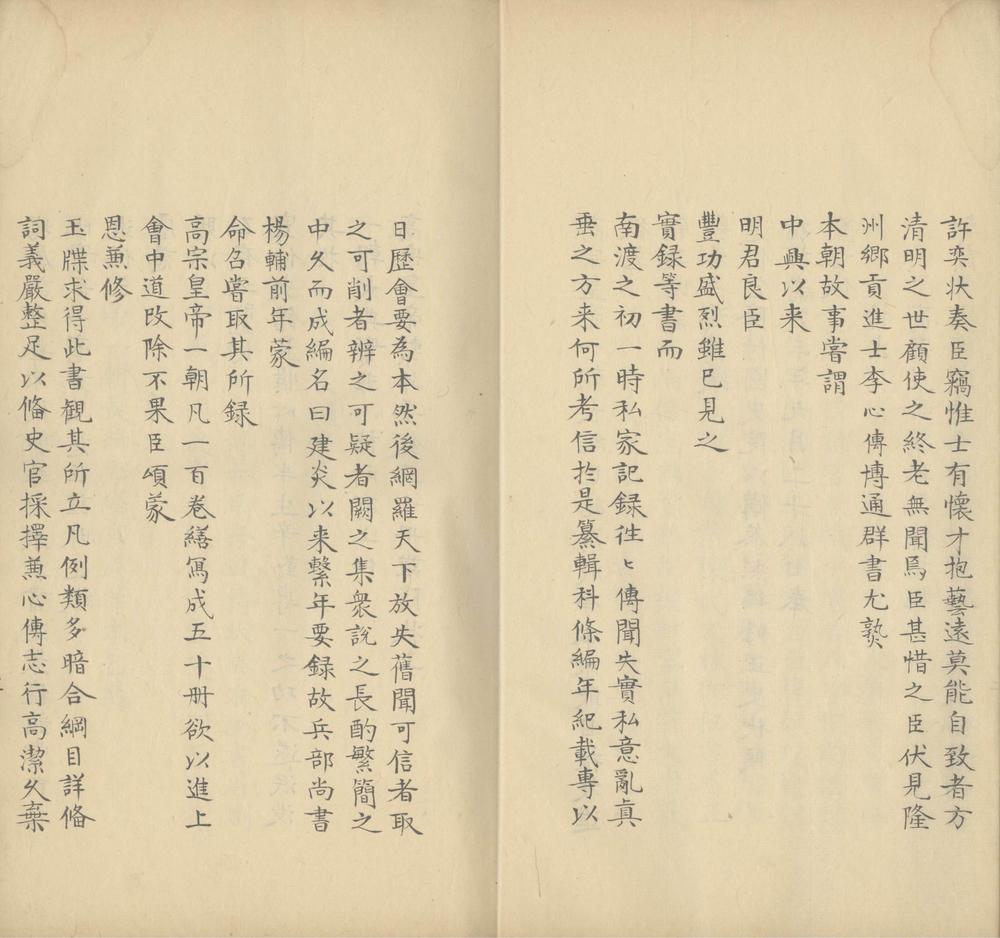 許奕狀奏臣竊惟士有懷才抱藝遠莫能自致者方
清明之世顧使之終老無聞焉臣甚惜之臣伏見隆
州鄉貢進士李心傳博通群書尤熟
本朝故事嘗謂
中興以来
明君良臣
豐功盛烈雖已見之
實録等書而
南渡之初一時私家記録徃〻傳聞失實私意亂真
垂之方来何所考信於是纂輯科條編年紀載專以
日歷會要為本然後網羅天下放失舊聞可信者取
之可削者辨之可疑者闕之集衆說之長酌繁簡之
中久而成編名曰建炎以来繫年要録故兵部尚書
楊輔前年蒙
命召嘗取其所録
高宗皇帝一朝凡一百卷繕寫成五十冊欲以進上
會中道改除不果臣頌蒙
恩兼修
玉牒求得此書觀其所立凡例類多暗合綱目詳俻
詞義嚴整足以俻史官採擇兼心傳志行高潔久棄